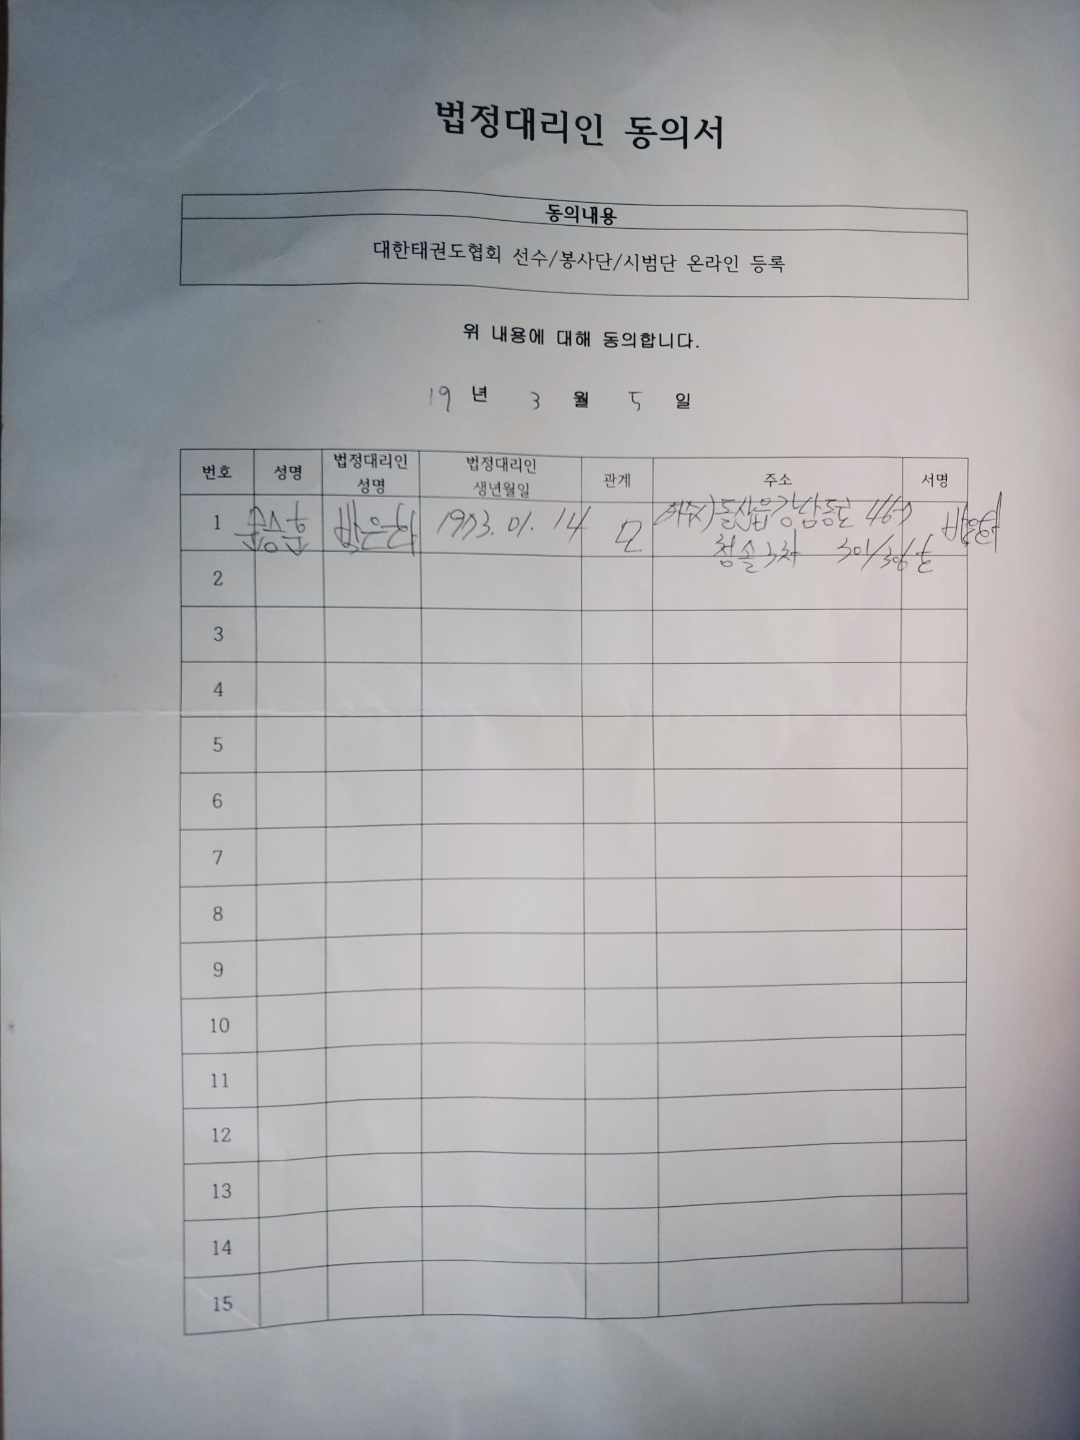 법정대리인 동의서
동의내용
대한태권도협회 선수/봉사단/시범단 온라인 등록
위 내용에 대해 동의합니다.
19 년 3 월 5 일
번호 성명 법정대리인 성명 법정대리인 생년월일 관계 주소 서명
1 박은화 1973.01.14 모 돌산읍 강남동로
청솔3차 301/306호
2
3
4
5
6
7
8
9
10
11
12
13
14
15